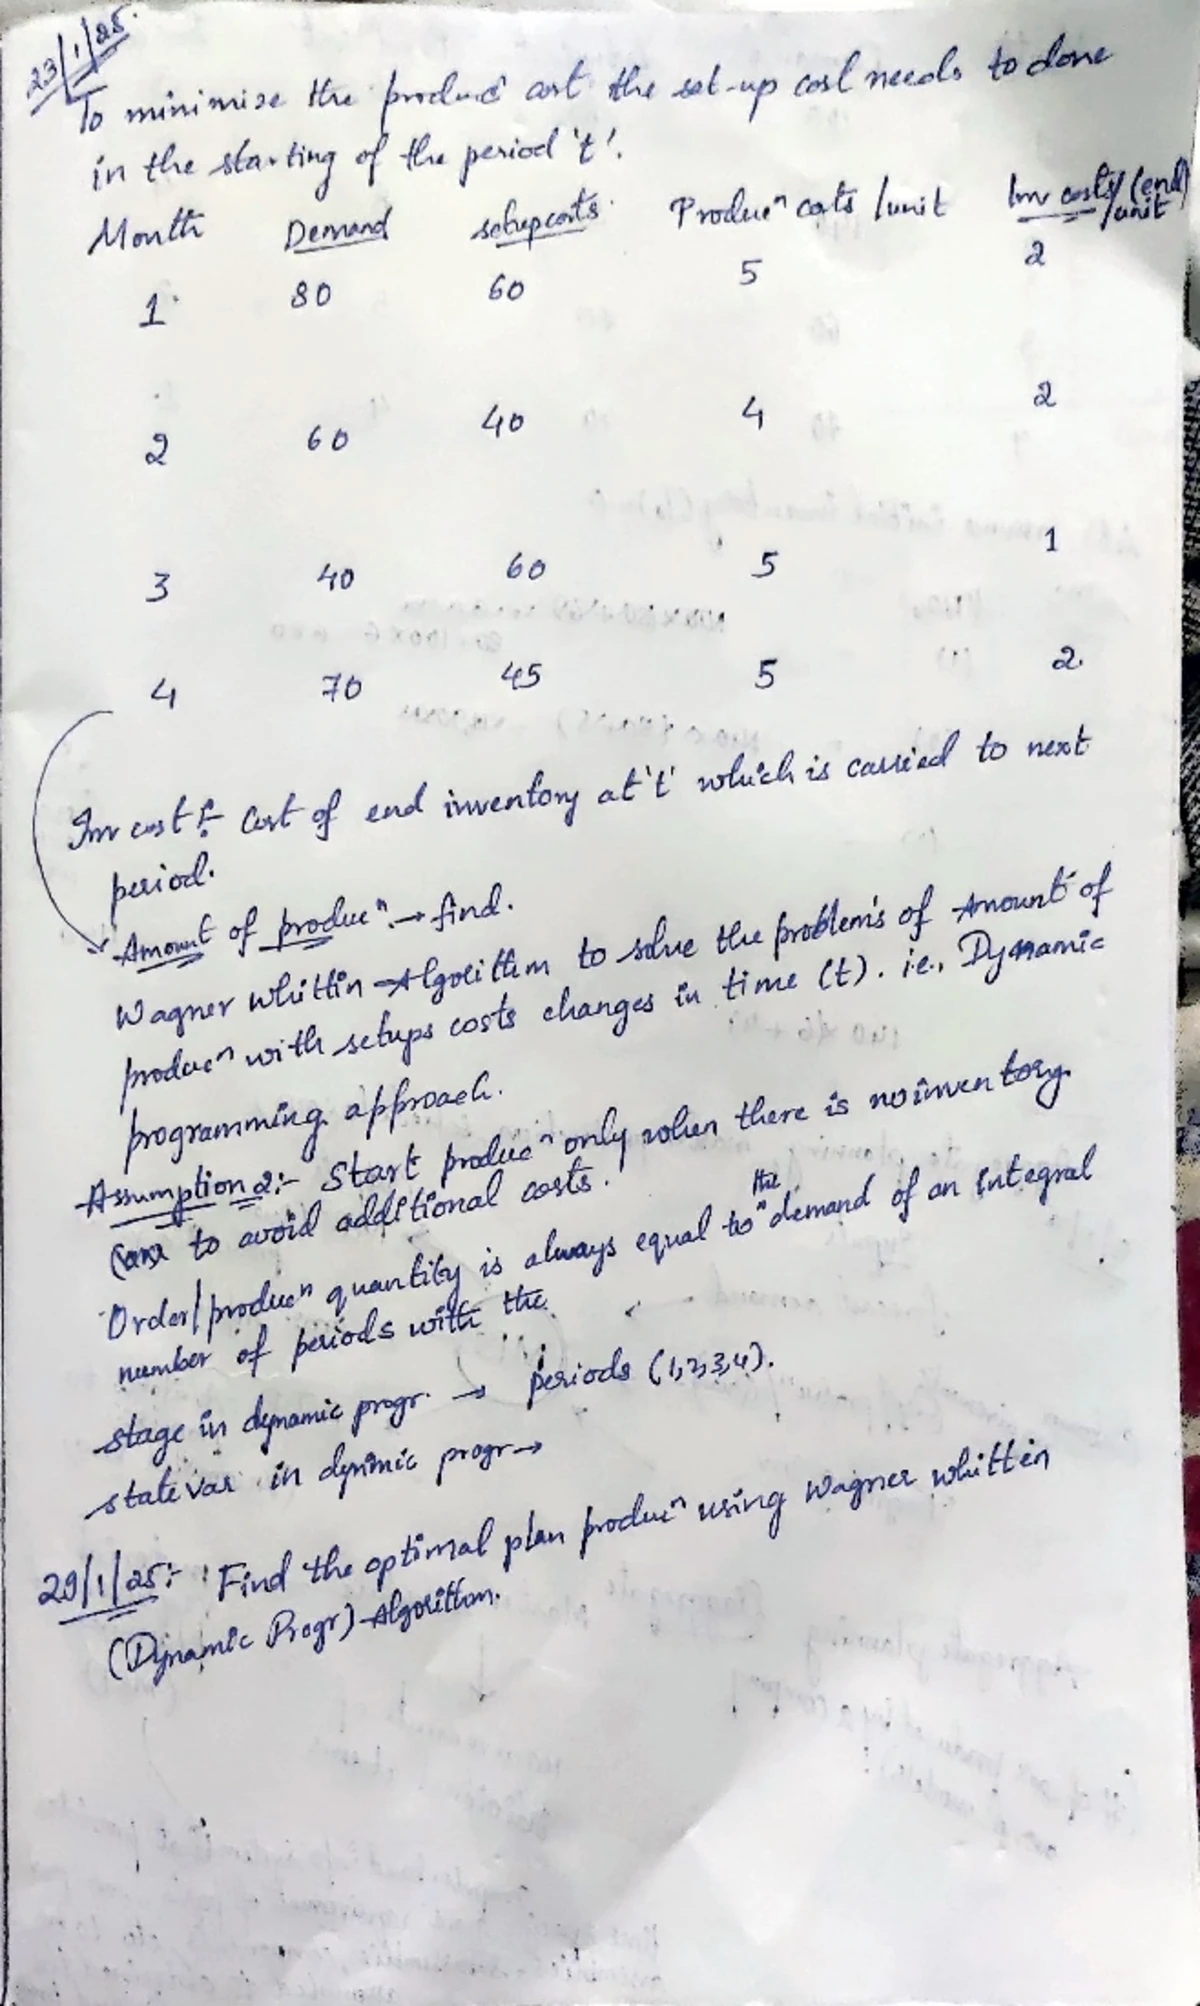 23/1/25.
To minimise the produc^n cost the set-up cost needs to done
in the starting of the period 't'.
Month Demand setupcosts Produc^n costs /unit Inv costs/(end)/unit
1 80 60 5 2
2 60 40 4 2
3 40 60 5 1
4 70 45 5 2
Inv cost :- Cost of end inventory at 't' which is carried to next
period.
Amount of produc^n. → find.
Wagner whittin Algorithm to solve the problem's of Amount of
produc^n with setups costs changes in time (t). i.e., Dynamic
programming approach.
Assumption 2:- Start produc^n only when there is no inventory
to avoid additional costs.
Order/produc^n quantity is always equal to the demand of an integral
number of periods with the
stage in dynamic progr. → periods (1,2,3,4).
state var in dynimic progr →
29/1/25:- Find the optimal plan produc^n using Wagner whitten
(Dynamic Progr) Algorithm.